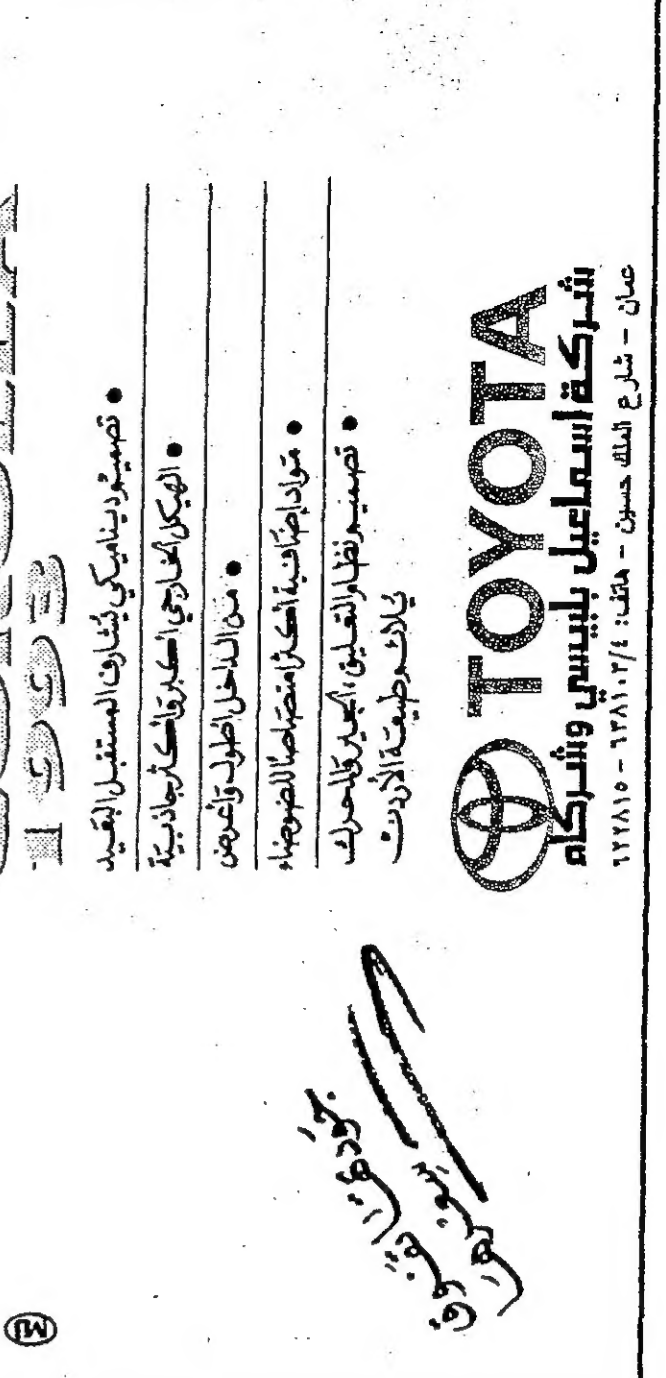 1993
• تصميم ديناميكي يشارف المستقبل البعيد
• الهيكل الخارجي اكبر واكثر جاذبية
• من الداخل اطول واعرض
• مواد إضافية اكثر امتصاصا للضوضاء
• تصميم نظام التعليق الجديد والمحرك
يلائم طبيعة الأردن
جودتها تفوق
سعرها
TOYOTA
شركة اسماعيل بلبيسي وشركاه
عمان - شارع الملك حسين - هاتف: ٦٣٨١٠٣/٤ - ٦٢٢٨١٥